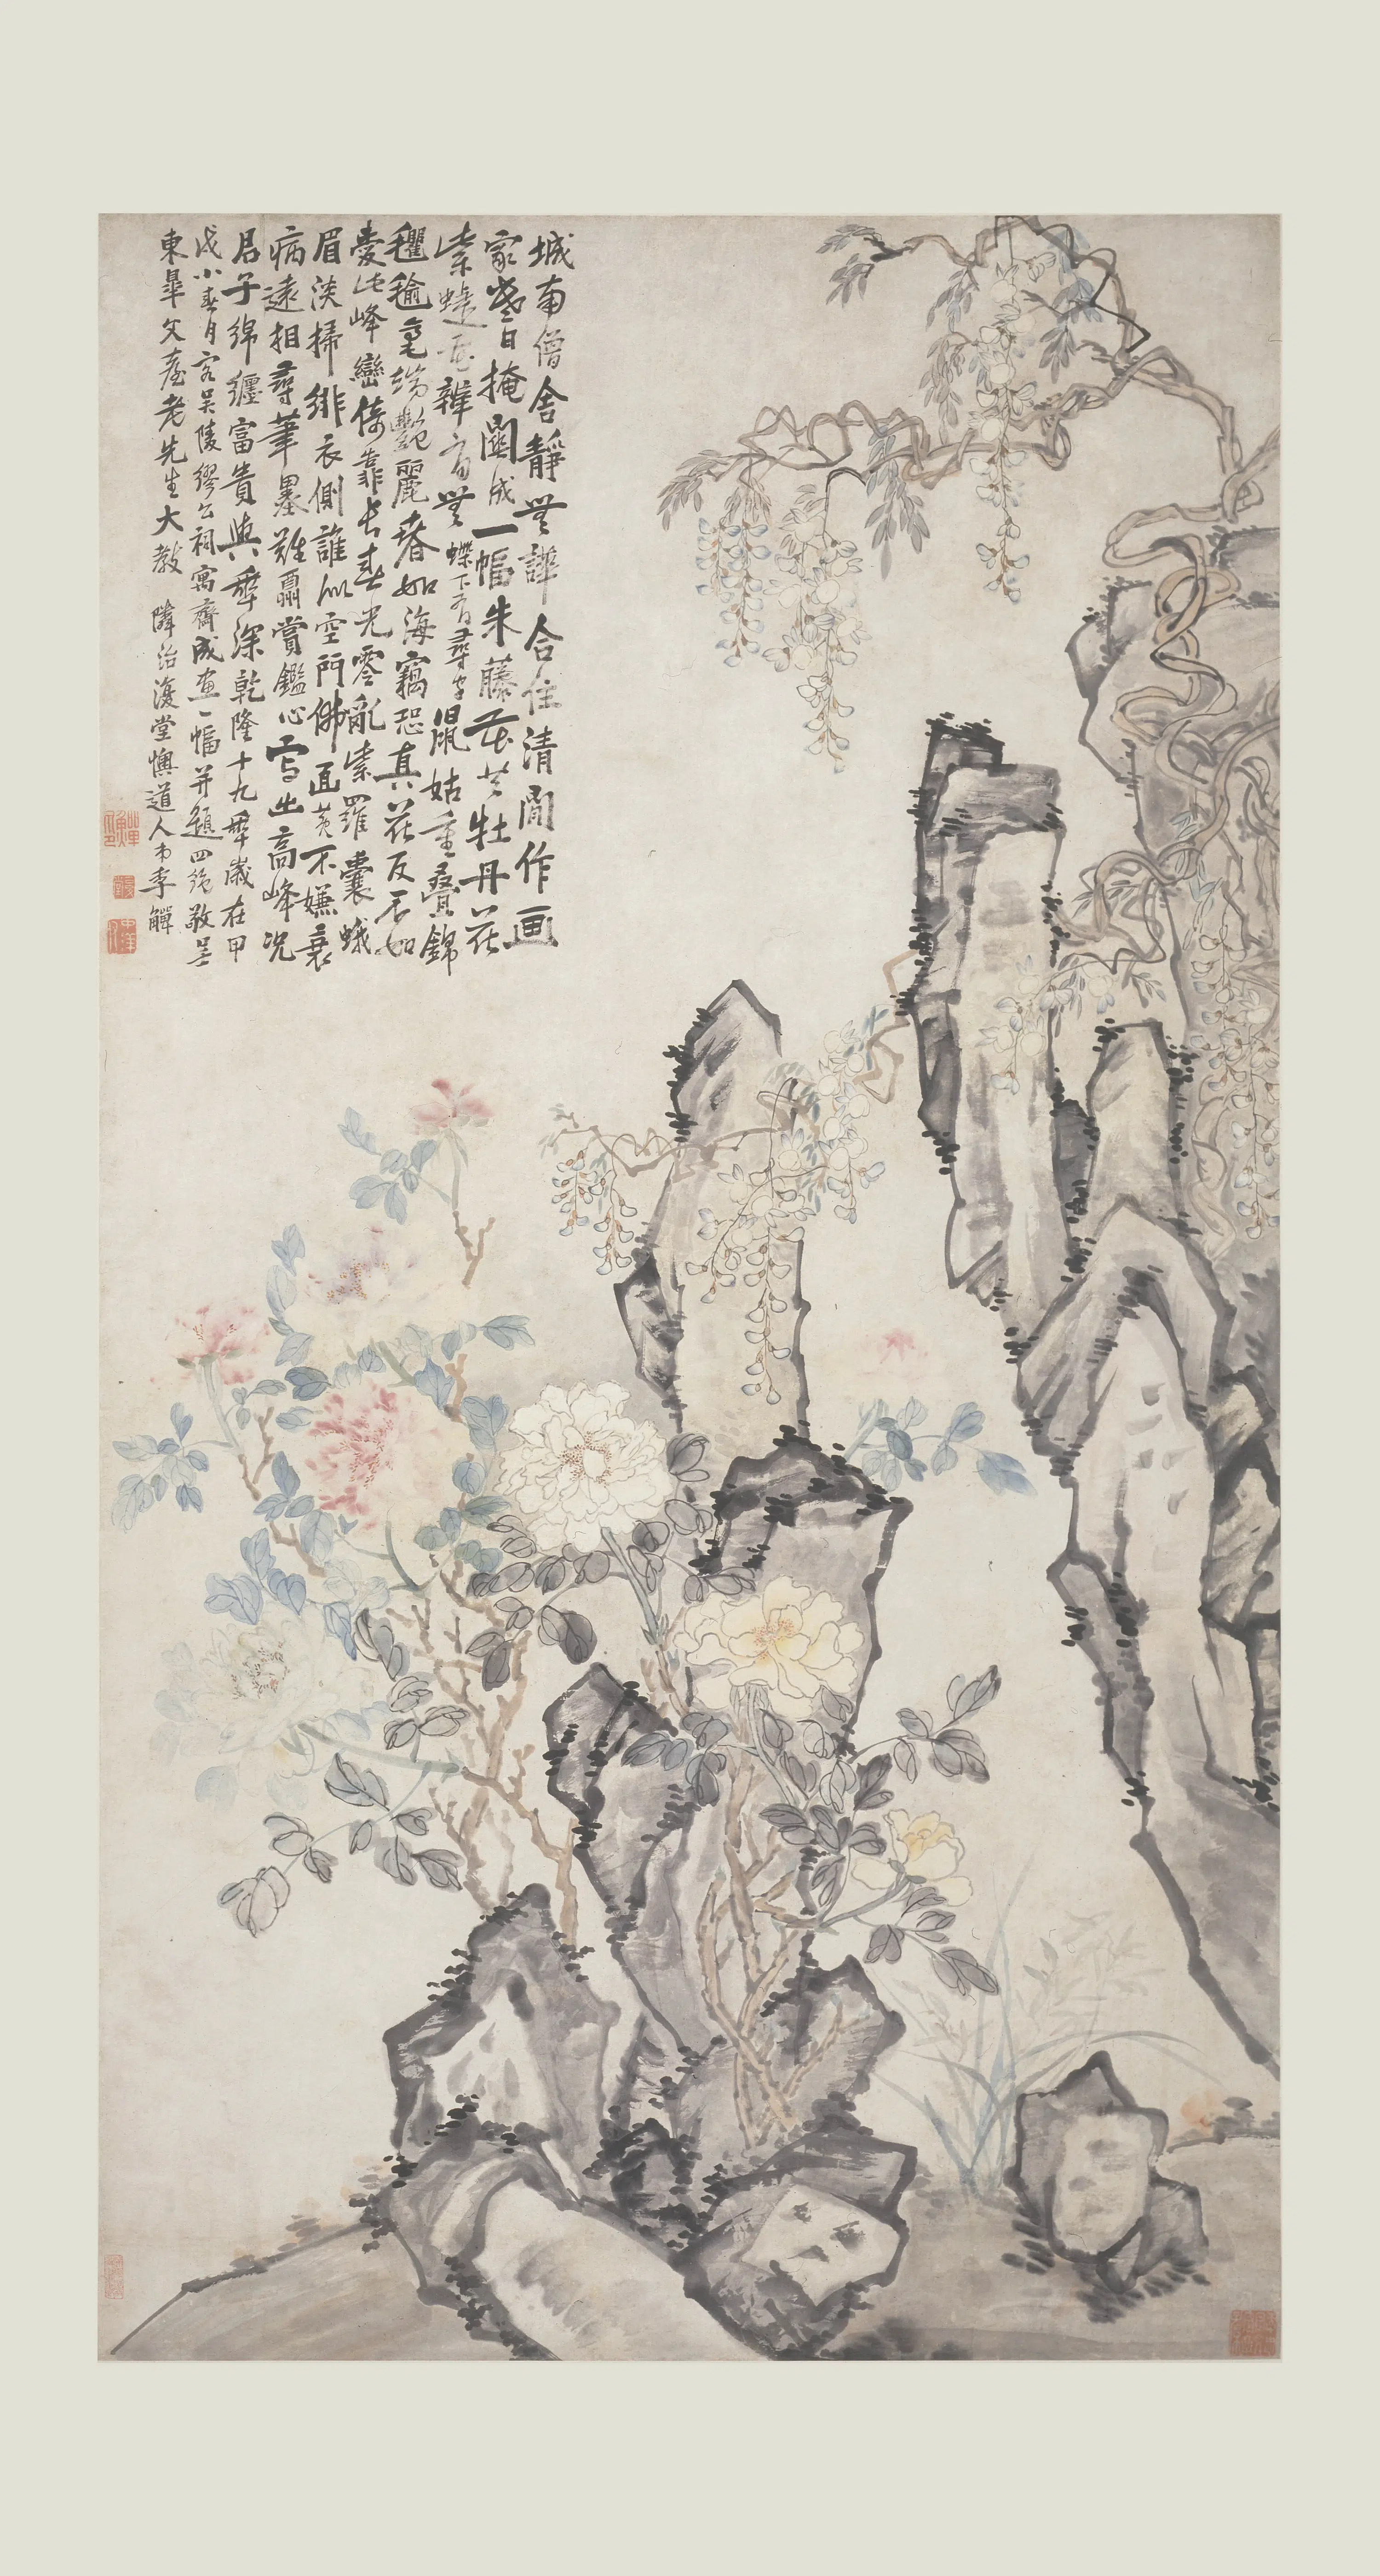 城南僧舍靜無譁合住清閒作画
家盡日掩關成一幅朱藤花共牡丹花
紫蜨 辨有無蝶下有尋字鼠姑重疊錦
氍毹毫端艷麗春如海竊恐真花反不如
愛此峰巒倚靠長春光零亂紫羅囊蛾
眉淡掃緋衣側誰似空門佛面黃不嫌衰
病遠相尋筆墨難酬賞鑑心寫出高峰況
君子綿纏富貴與年深乾隆十九年歲在甲
戌小春月客吳陵繆公祠寓齋成畫一幅并題四絕敬呈
東皋父臺老先生大教 隣治復堂懊道人弟李觶